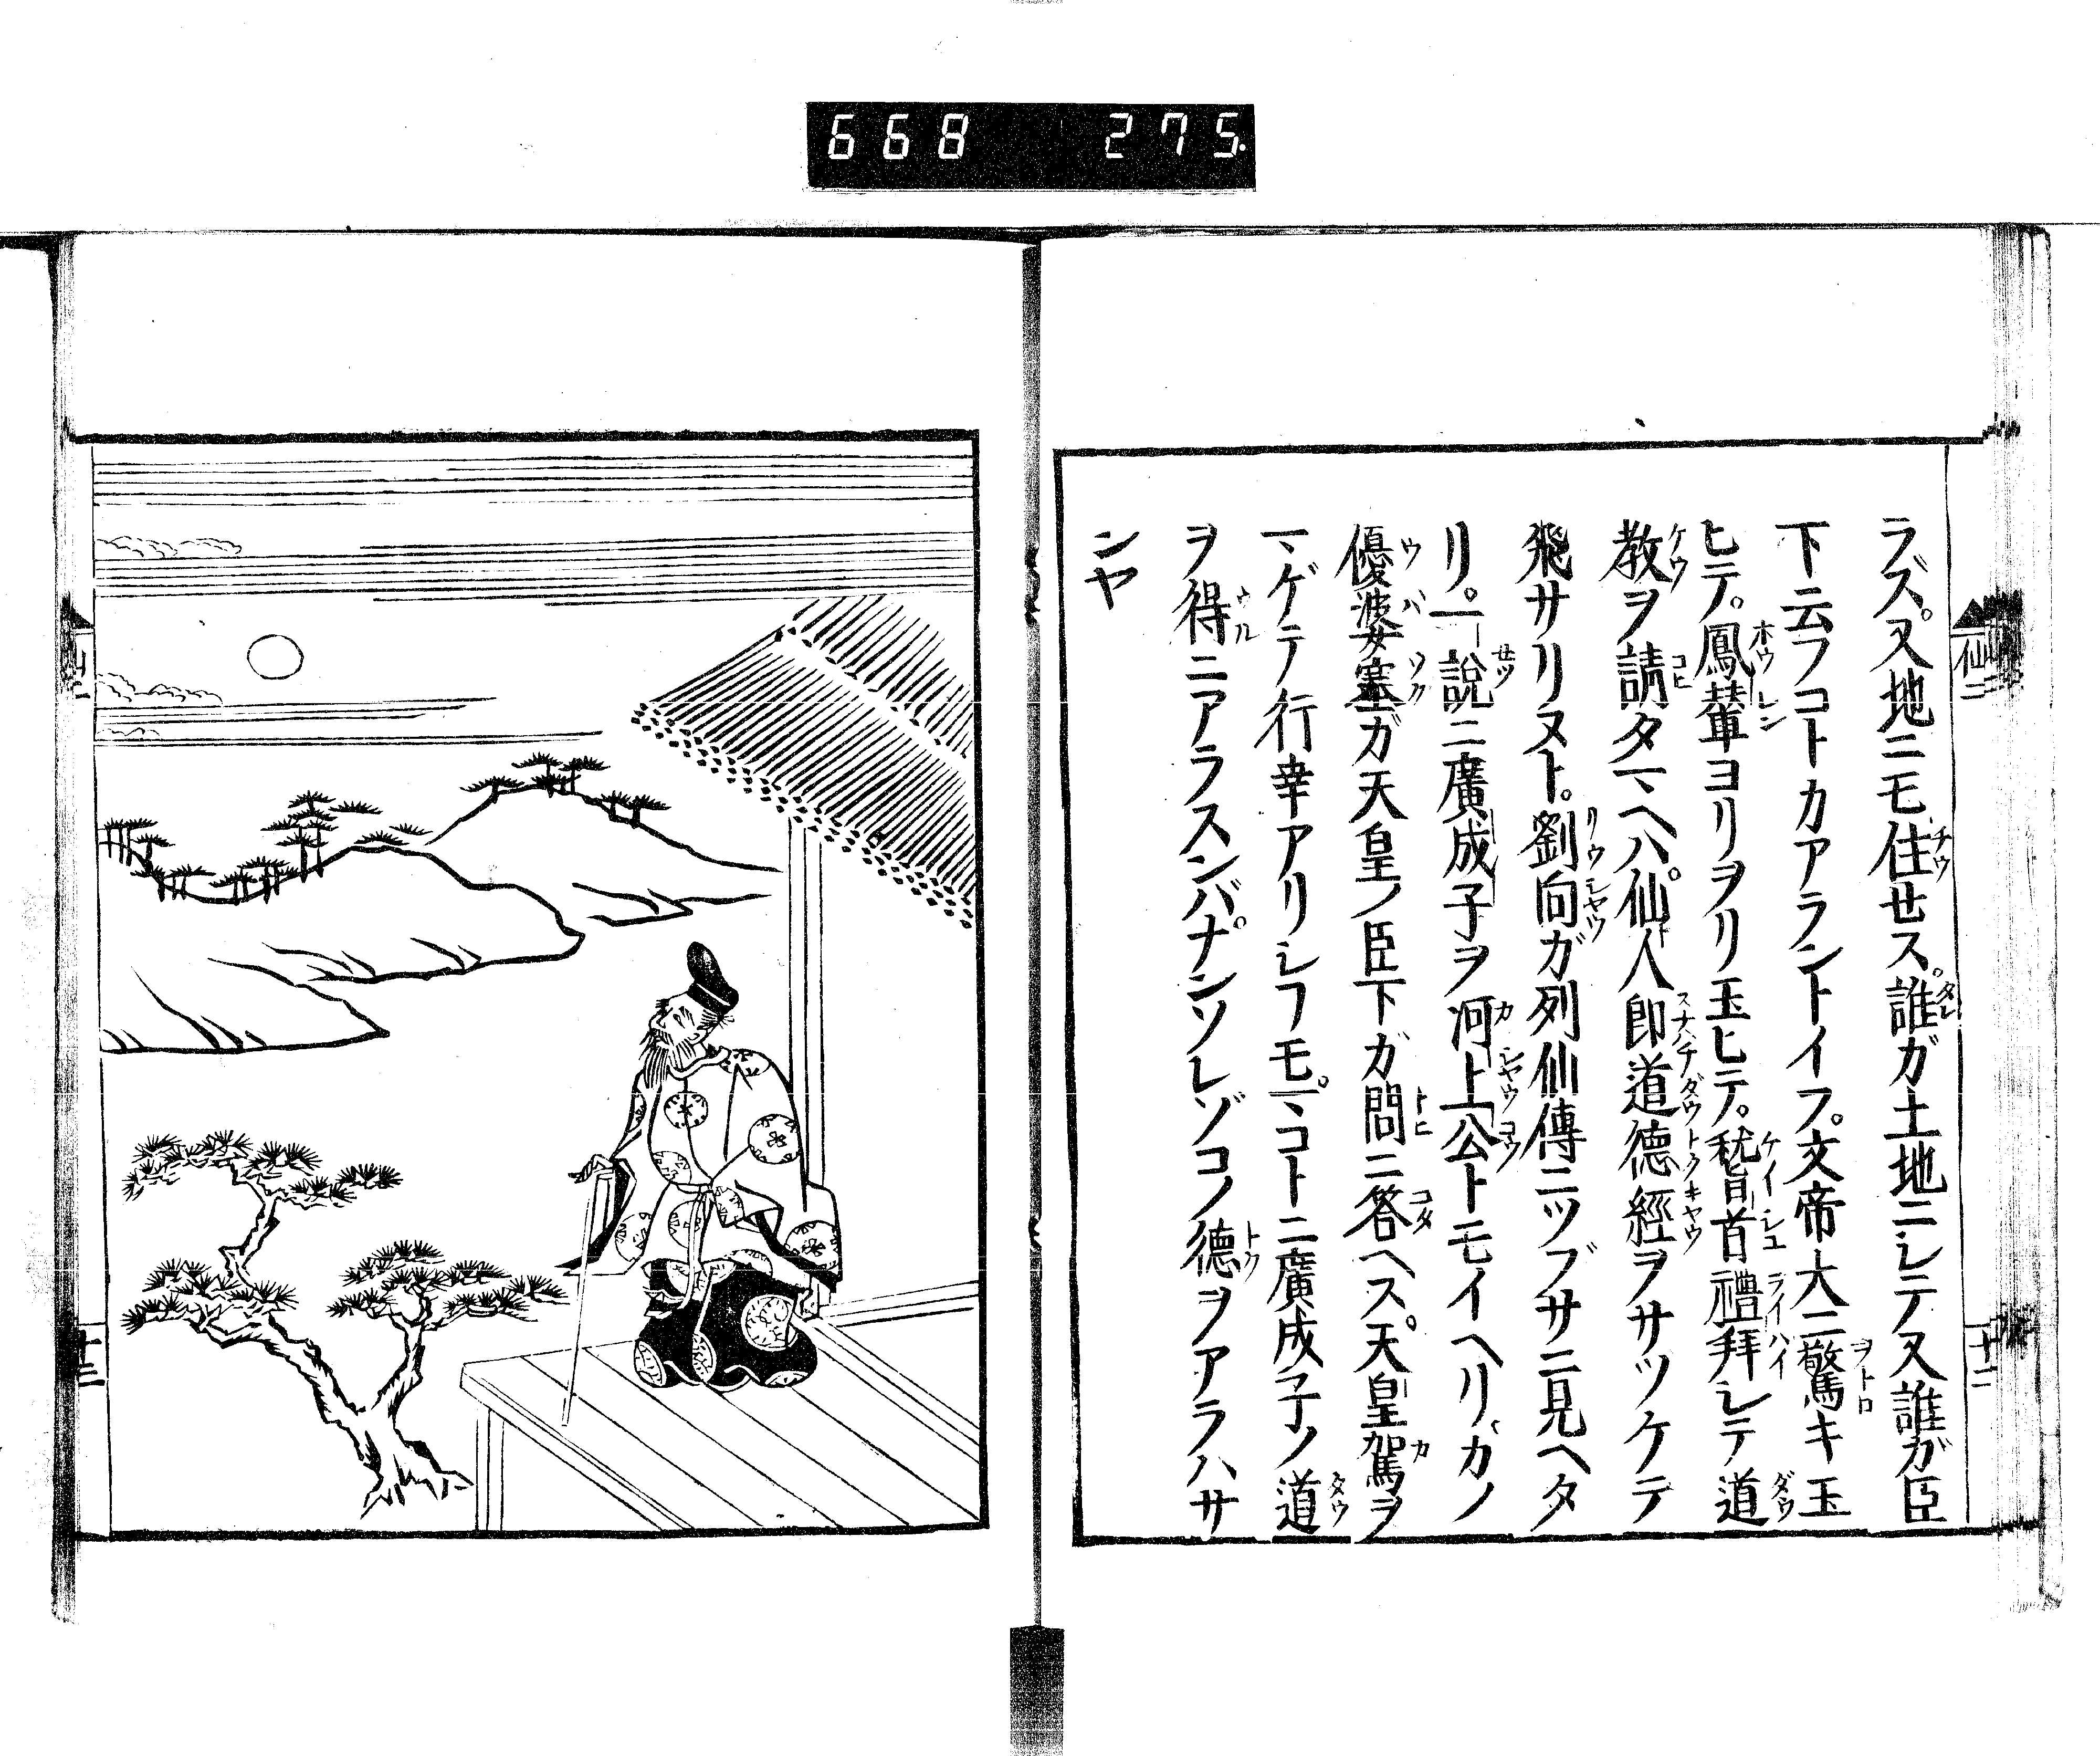 668 275
ラズ。又地ニモ住セス。誰ガ土地ニシテ又誰ガ臣
下云フコトカアラントイフ。文帝大ニ驚キ玉
ヒテ。鳳輦ヨリヲリ玉ヒテ。稽首禮拜シテ道
教ヲ請タマヘハ。仙人即道德經ヲサツケテ
飛サリヌト。劉向ガ列仙傳ニツブサニ見ヘタ
リ。一說ニ廣成子ヲ河上公トモイヘリ、カノ
優婆塞ガ天皇ノ臣下ガ問ニ答ヘス。天皇駕ヲ
マゲテ行幸アリシフモ。マコトニ廣成子ノ道
ヲ得ニアラスンバ。ナンソレゾコノ德ヲアラハサ
ンヤ
仙二
十二
十三